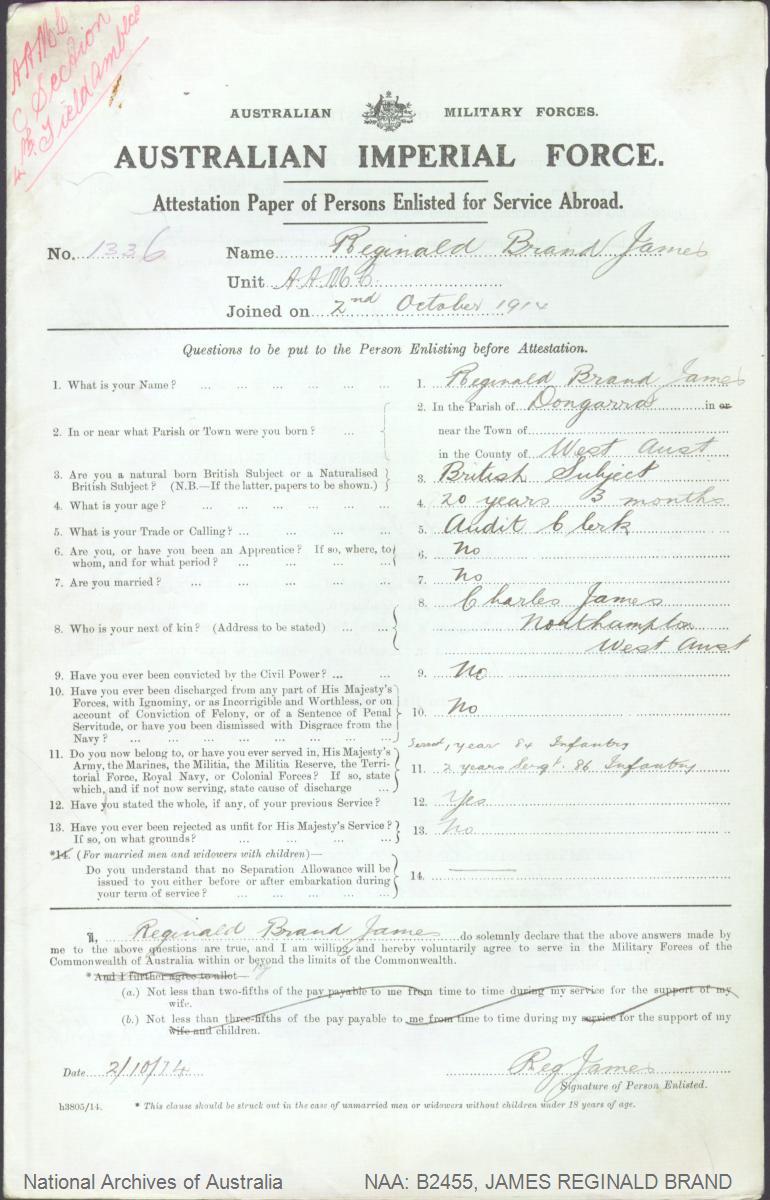 A A M C
C Section
4th Field Amblce
AUSTRALIAN MILITARY FORCES.
AUSTRALIAN IMPERIAL FORCE.
Attestation Paper of Persons Enlisted for Service Abroad.
No. 1336 Name Reginald Brand James
Unit A A M C
Joined on 2nd October 1914
Questions to be put to the Person Enlisting before Attestation.
1. What is your Name? ... ... ... ... ... 1. Reginald Brand James
2. In or near what Parish or Town were you born? ... 2. In the Parish of Dongarra in or
near the Town of
in the County of West Aust
3. Are you a natural born British Subject or a Naturalised
British Subject? (N.B.—If the latter, papers to be shown.) 3. British Subject
4. What is your age? ... ... ... ... ... 4. 20 years 3 months
5. What is your Trade or Calling? ... ... ... ... 5. Audit Clerk
6. Are you, or have you been an Apprentice? If so, where, to
whom, and for what period? ... ... ... ... 6. No
7. Are you married? ... ... ... ... ... 7. No
8. Who is your next of kin? (Address to be stated) ... ... 8. Charles James
Northampton
West Aust
9. Have you ever been convicted by the Civil Power? ... ... 9. No
10. Have you ever been discharged from any part of His Majesty's
Forces, with Ignominy, or as Incorrigible and Worthless, or on
account of Conviction of Felony, or of a Sentence of Penal
Servitude, or have you been dismissed with Disgrace from the
Navy? ... ... ... ... ... ... 10. No
11. Do you now belong to, or have you ever served in, His Majesty's
Army, the Marines, the Militia, the Militia Reserve, the Terri-
torial Force, Royal Navy, or Colonial Forces? If so, state
which, and if not now serving, state cause of discharge ...
Served 1 year 84 Infantry
11. 2 years Sergt. 86 Infantry
12. Have you stated the whole, if any, of your previous Service? 12. Yes
13. Have you ever been rejected as unfit for His Majesty's Service?
If so, on what grounds? ... ... ... ... 13. No
*14. (For married men and widowers with children)—
Do you understand that no Separation Allowance will be
issued to you either before or after embarkation during
your term of service? ... ... ... ... 14.
I, Reginald Brand James do solemnly declare that the above answers made by
me to the above questions are true, and I am willing and hereby voluntarily agree to serve in the Military Forces of the
Commonwealth of Australia within or beyond the limits of the Commonwealth.
* And I further agree to allot—
(a.) Not less than two-fifths of the pay payable to me from time to time during my service for the support of my
wife.
(b.) Not less than three-fifths of the pay payable to me from time to time during my service for the support of my
wife and children.
Date 2/10/14 Reg James
Signature of Person Enlisted.
h3805/14. * This clause should be struck out in the case of unmarried men or widowers without children under 18 years of age.
National Archives of Australia NAA: B2455, JAMES REGINALD BRAND